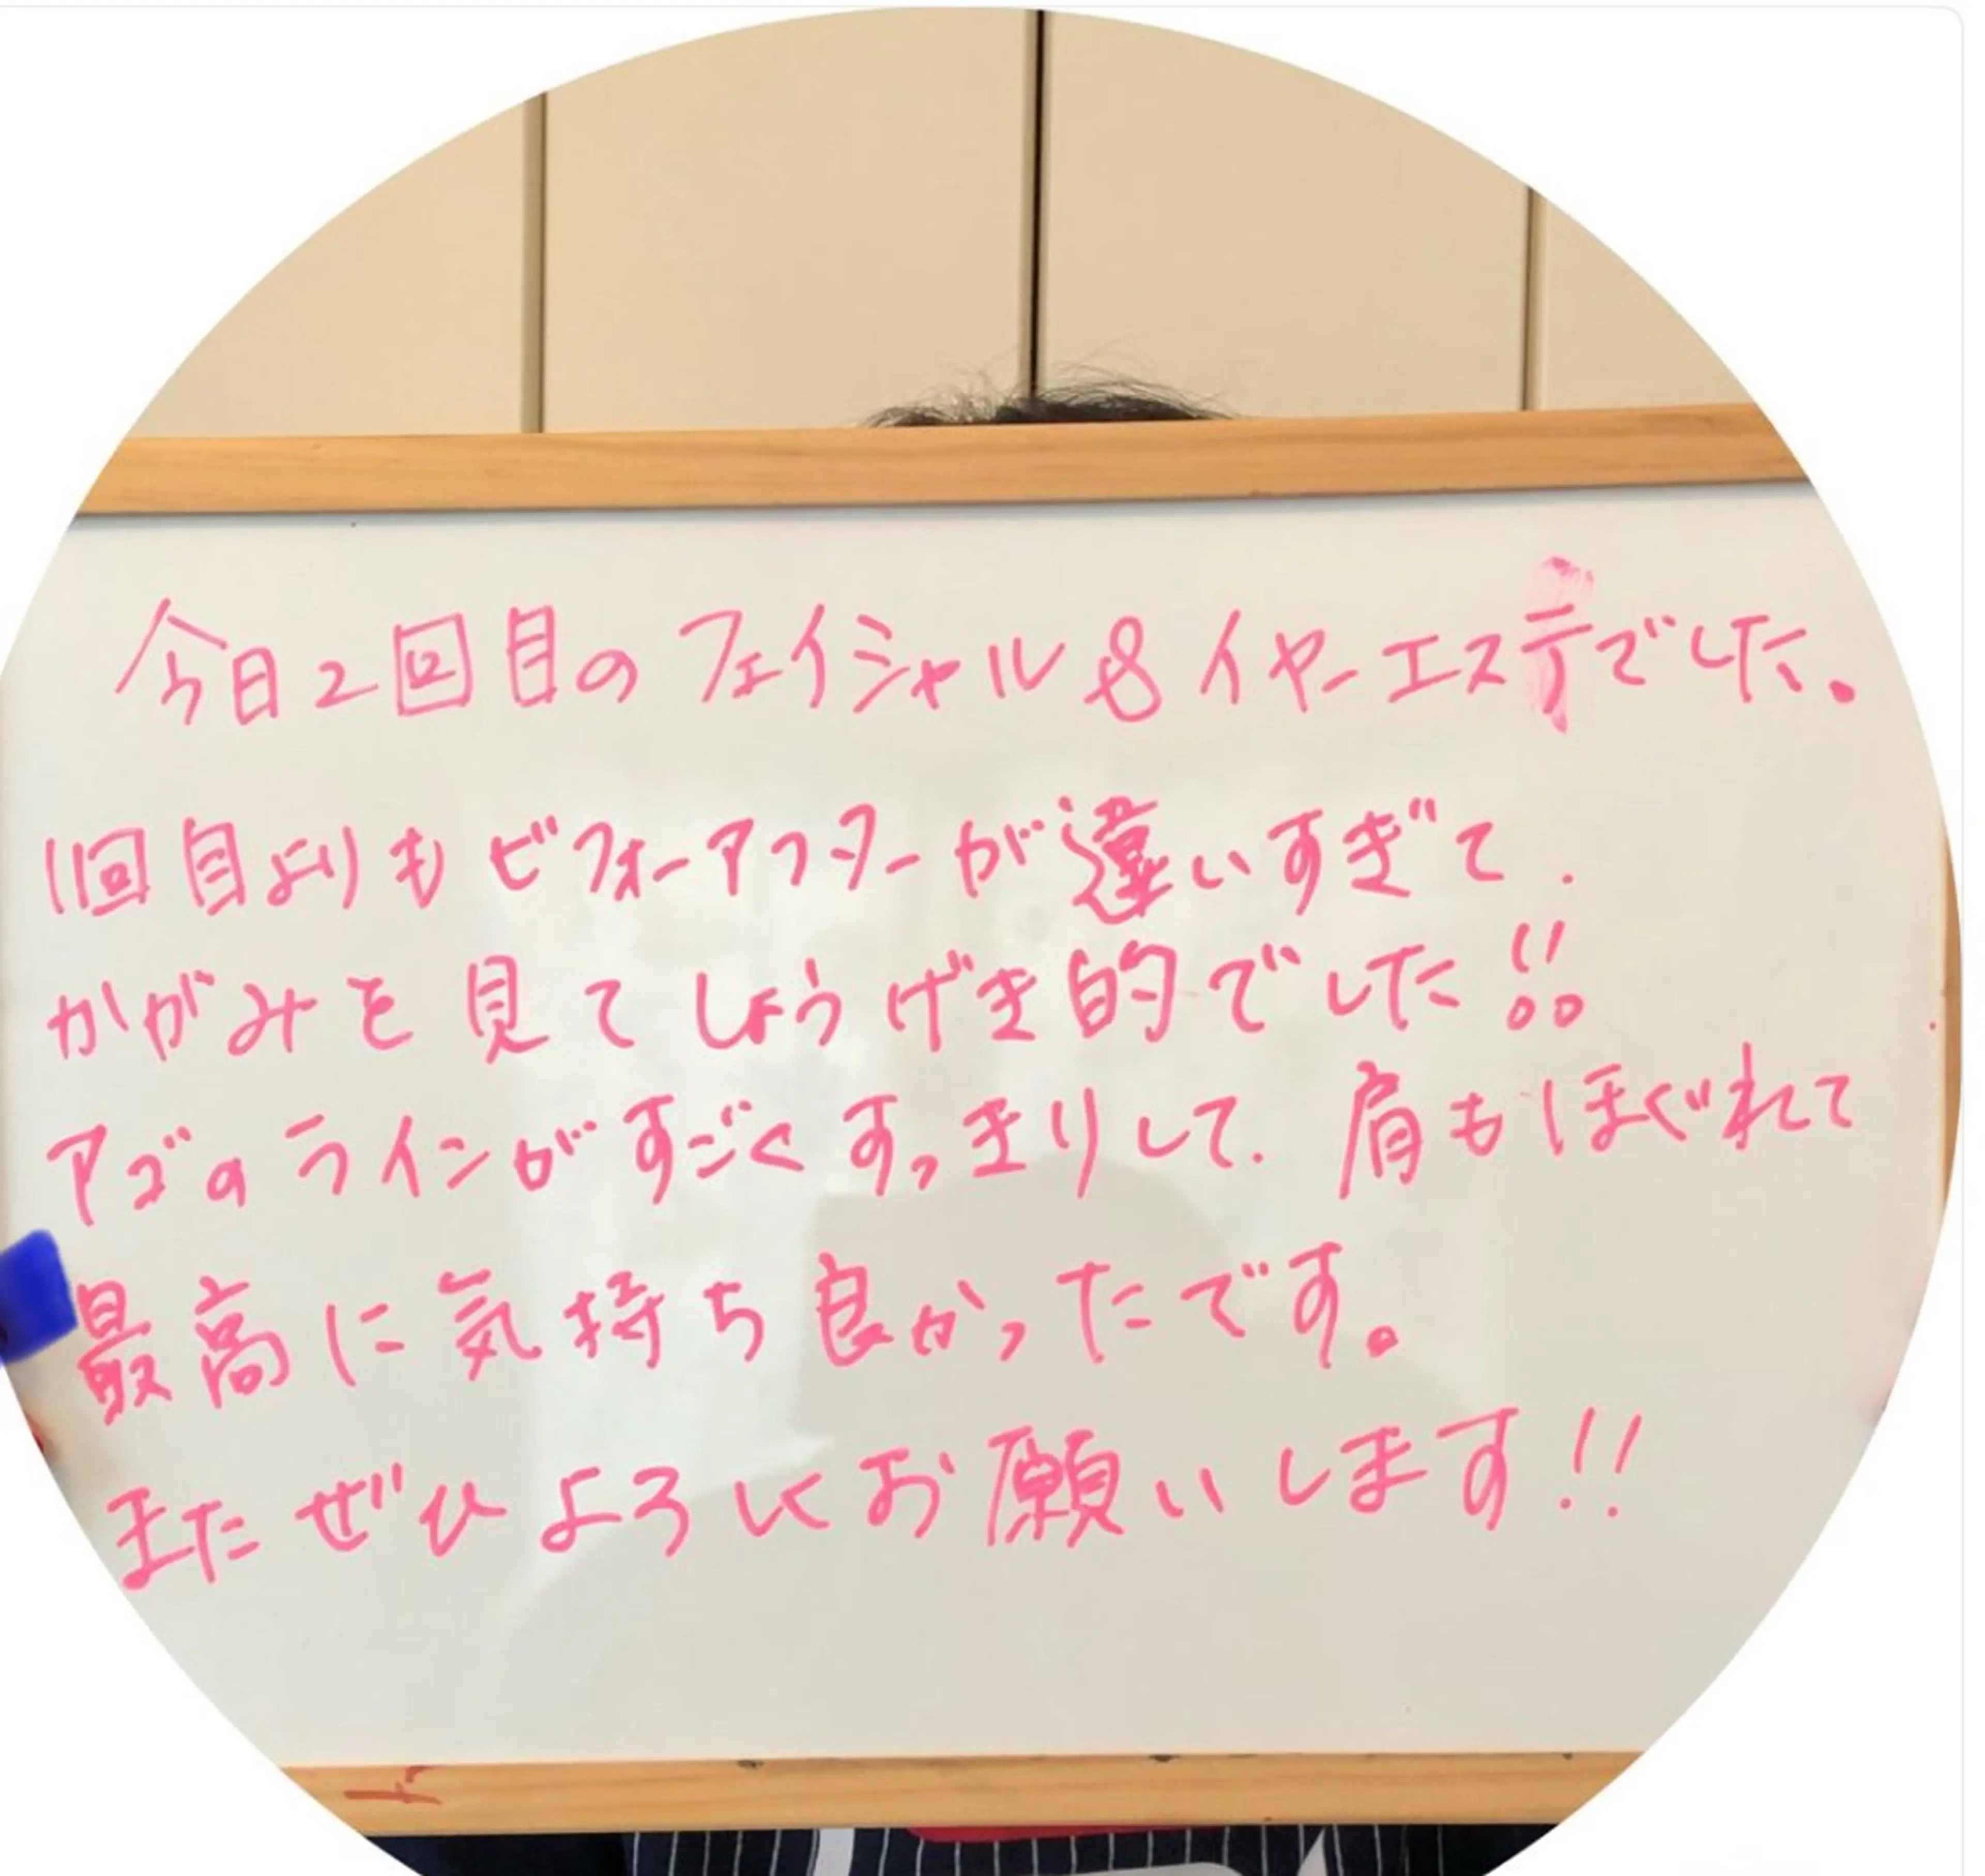 今日2回目のフェイシャル&イヤーエステでした。
1回目よりもビフォーアフターが違いすぎて.
かがみを見てしょうげき的でした!!
アゴのラインがすごくすっきりして.肩もほぐれて
最高に気持ち良かったです。
またぜひよろしくお願いします!!